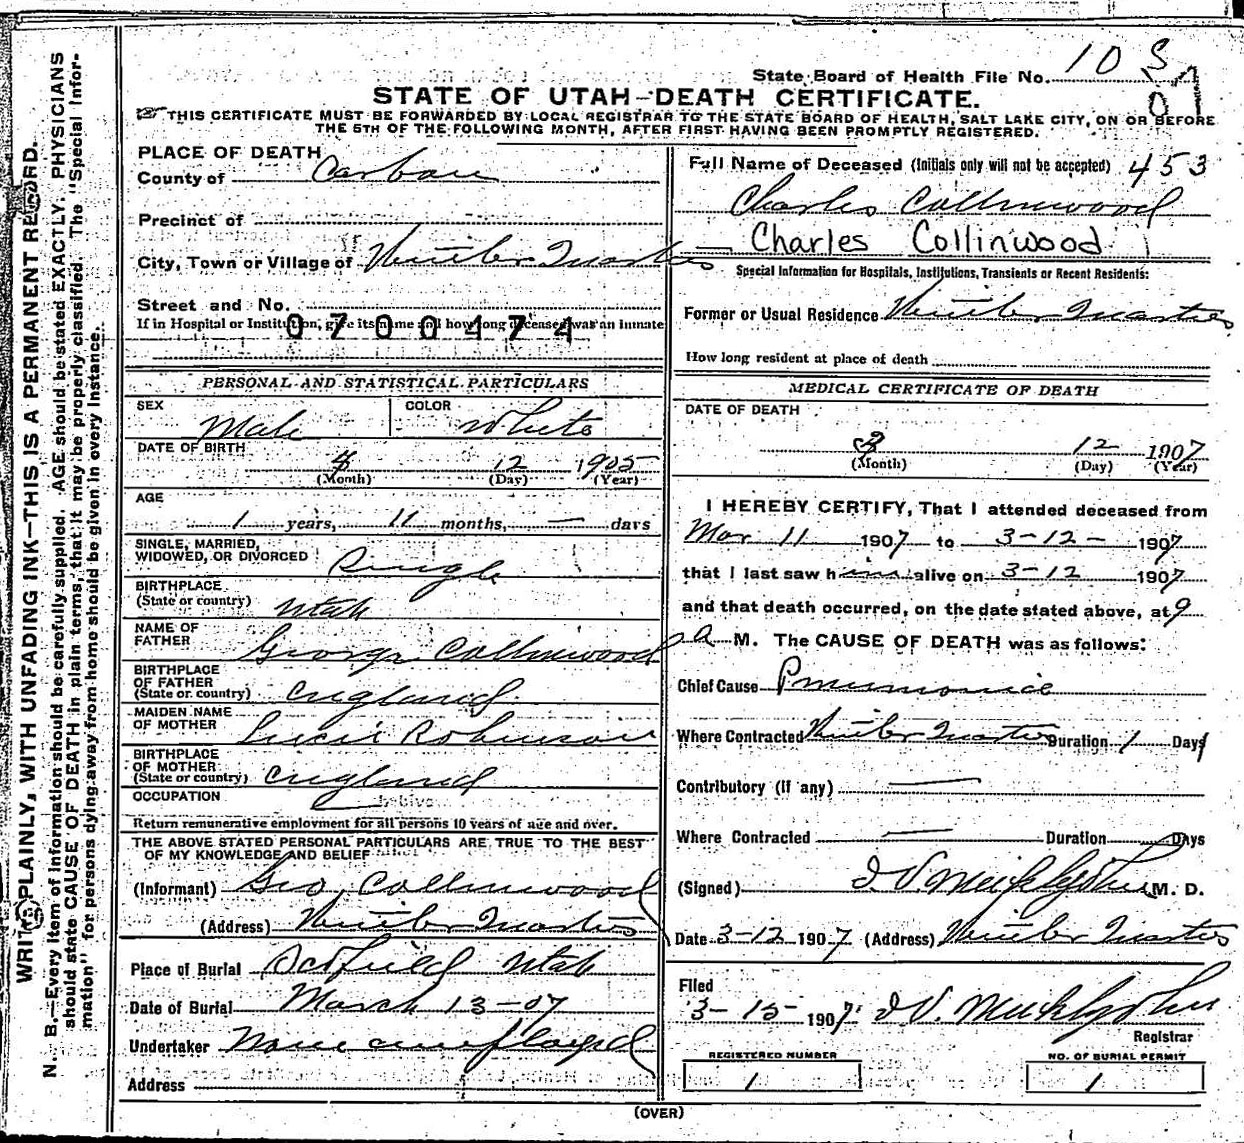 State Board of Health File No. 10 S
07
STATE OF UTAH—DEATH CERTIFICATE.
THIS CERTIFICATE MUST BE FORWARDED BY LOCAL REGISTRAR TO THE STATE BOARD OF HEALTH, SALT LAKE CITY, ON OR BEFORE
THE 5TH OF THE FOLLOWING MONTH, AFTER FIRST HAVING BEEN PROMPTLY REGISTERED.
WRITE PLAINLY, WITH UNFADING INK—THIS IS A PERMANENT RECORD.
N. B.—Every item of information should be carefully supplied. AGE should be stated EXACTLY. PHYSICIANS
should state CAUSE OF DEATH in plain terms, that it may be properly classified. The "Special Infor-
mation" for persons dying away from home should be given in every instance.
PLACE OF DEATH
County of Carbon
Precinct of
City, Town or Village of Winter Quarters
Street and No.
If in Hospital or Institution, give its name and how long deceased was an inmate
0700474
PERSONAL AND STATISTICAL PARTICULARS
SEX Male COLOR White
DATE OF BIRTH
4 12 1905
(Month) (Day) (Year)
AGE
1 years, 11 months, — days
SINGLE, MARRIED,
WIDOWED, OR DIVORCED Single
BIRTHPLACE
(State or country) Utah
NAME OF
FATHER George Collinwood
BIRTHPLACE
OF FATHER
(State or country) England
MAIDEN NAME
OF MOTHER Robinson
BIRTHPLACE
OF MOTHER
(State or country) England
OCCUPATION
Return remunerative employment for all persons 10 years of age and over.
THE ABOVE STATED PERSONAL PARTICULARS ARE TRUE TO THE BEST
OF MY KNOWLEDGE AND BELIEF
(Informant) Geo, Collinwood
(Address) Winter Quarters
Place of Burial Scofield Utah
Date of Burial March 13-07
Undertaker None employed
Address
Full Name of Deceased (Initials only will not be accepted) 453
Charles Collinwood
Charles Collinwood
Special Information for Hospitals, Institutions, Transients or Recent Residents:
Former or Usual Residence Winter Quarters
How long resident at place of death
MEDICAL CERTIFICATE OF DEATH
DATE OF DEATH
3 12 1907
(Month) (Day) (Year)
I HEREBY CERTIFY, That I attended deceased from
Mar 11 1907 to 3-12- 1907
that I last saw him alive on 3-12 1907
and that death occurred, on the date stated above, at 9
a M. The CAUSE OF DEATH was as follows:
Chief Cause Pneumonia
Where Contracted Winter Quarters Duration 1 Days
Contributory (if any) —
Where Contracted — Duration Days
(Signed) M. D.
Date 3-12 1907 (Address) Winter Quarters
Filed
3-15-1907
Registrar
REGISTERED NUMBER
1
NO. OF BURIAL PERMIT
1
(OVER)